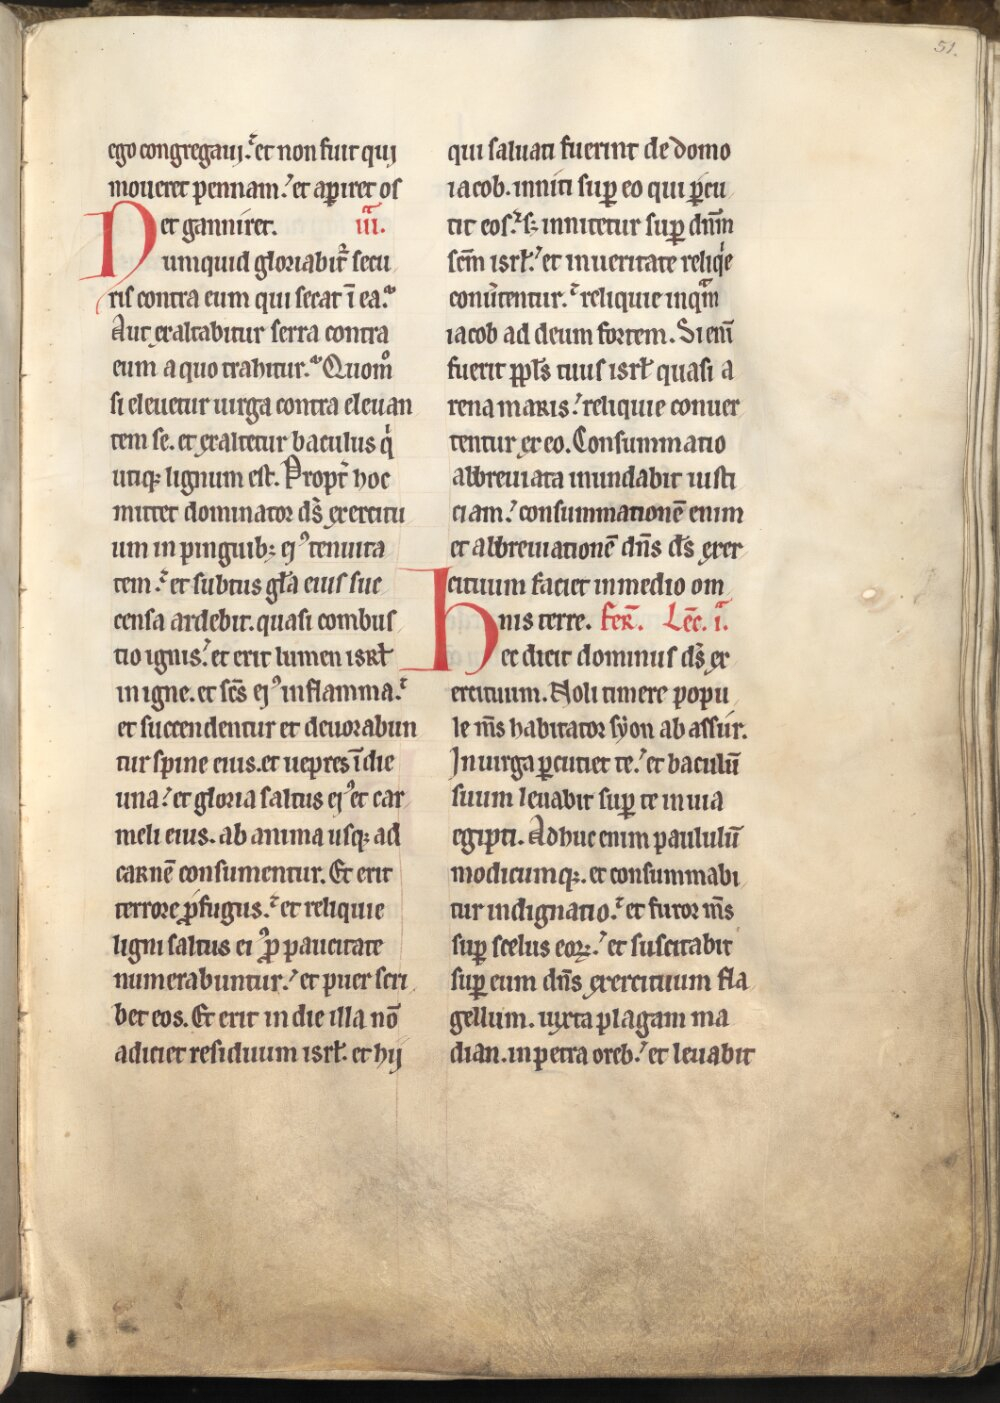 51.
ego congregaui. et non fuit qui
moueret pennam. et aꝑiret os
et ganniret. iii.ᵃ
Numquid gloriabit᷑ secu
ris contra eum qui secat ī ea.
Aut exaltabitur serra contra
eum a quo trahitur. Quom̊
si eleuetur uirga contra eleuan
tem se. et exaltetur baculus q̇
utiqꝫ lignum est. Propt̄ hoc
mittet dominator ds̄ exercitu
um in pinguibꝫ eiꝰ tenuita
tem. et subtus gl̄a eius suc
censa ardebit. quasi combus
tio ignis. et erit lumen isrł
in igne. et sc̄s eiꝰ in flamma.
et succendentur et deuorabun
tur spine eius. et uepres ī die
una. et gloria saltus eiꝰ et car
meli eius. ab anima usqꝫ ad
carnē consumentur. Et erit
terrore ꝓfugus. et reliquie
ligni saltus eiꝰ p̄ paucitate
numerabuntur. et puer scri
bet eos. Et erit in die illa nō
adiciet residuum isrł. et hij
qui saluati fuerint de domo
iacob. inniti suꝑ eo qui ꝑcu
tit eos. sꝫ innitetur suꝑ dn̄m
sc̄m isrł. et in ueritate reliq̇e
conu̓tentur. reliquie inqᵃm
iacob ad deum fortem. Si eni̅
fuerit ppl̄s tuus isrł quasi a
rena maris. reliquie conuer
tentur ex eo. Consummatio
abbreuiata inundabit iusti
ciam. consummationē enim
et abbreuiationē dn̄s ds̄ exer
cituum faciet in medio om
nis terre. Fer̄. Lec̄. i.ᵃ
Hec dicit dominus ds̄ ex
ercituum. Noli timere popu
le m̄s habitator syon ab assur.
In uirga ꝑcutiet te. et baculū
suum leuabit suꝑ te in uia
egipti. Adhuc enim paululū
modicumqꝫ. et consummabi
tur indignatio. et furor m̄s
suꝑ scelus eoꝝ. et suscitabit
suꝑ eum dn̄s exercituum fla
gellum. iuxta plagam ma
dian. in petra oreb. et leuabit